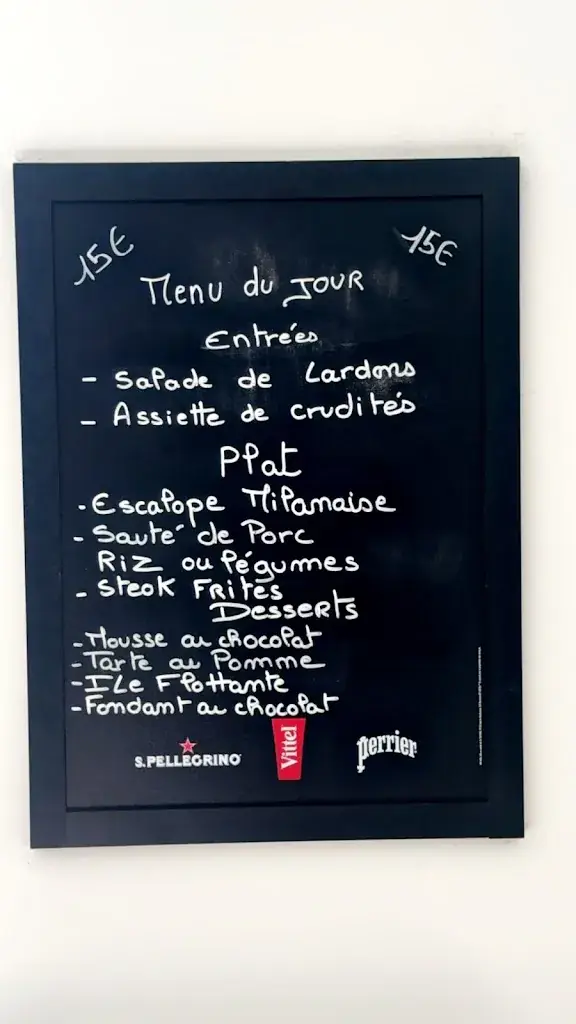 15€ 15€
Menu du JOUR
Entrées
- Salade de Lardons
- Assiette de crudités
Plat
- Escalope Milanaise
- Sauté de Porc
Riz ou légumes
- Steak Frites
Desserts
- Mousse au chocolat
- Tarte au Pomme
- ILe Flottante
- Fondant au chocolat
S.PELLEGRINO Vittel perrier